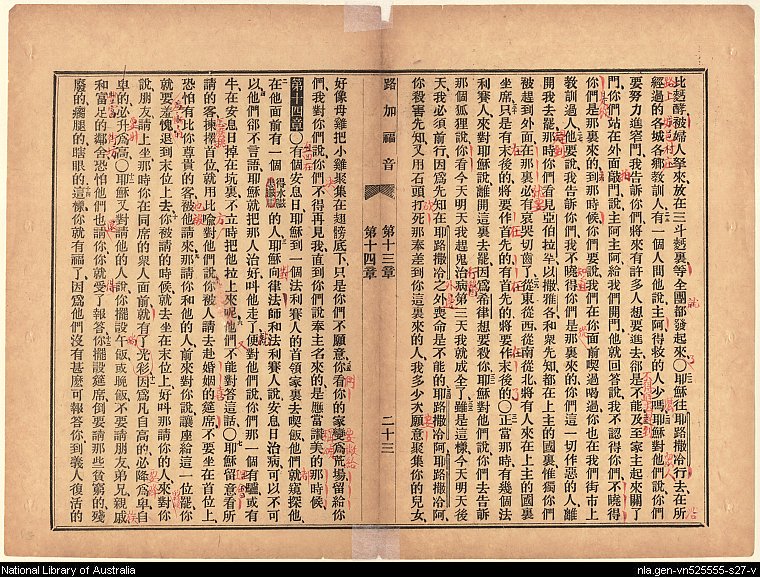 比麪酵被婦人拏來放在三斗麪裏等全團都發起來○耶穌往耶路撒冷行去在所
經過的各城各鄉教訓人有一個人問他說主阿得救的人少嗎耶穌對他們說你們
要努力進窄門我告訴你們將來有許多人想要進去卻是不能及至家主起來關了
門你們站在外面敲門說主阿主阿給我們開門他就回答說我不認得你們不曉得
你們是那裏來的到那時候你們要說我們在你面前喫過喝過你也在我們街市上
教訓過人他要說我告訴你們我不曉得你們是那裏來的你們這一切作惡的人離
開我去罷那時你們看見亞伯拉罕以撒雅各和衆先知都在上主的國裏惟獨你們
被趕到外面在那裏必有哀哭切齒了從東從西從南從北將有人來在上主的國裏
坐席只是有末後的將要作首先的有首先的將要作末後的○正當那時有幾個法
利賽人來對耶穌說離開這裏去罷因爲希律想要殺你耶穌對他們說你們去告訴
那個狐狸說你看今天明天我趕鬼治病第三天我就成全了雖是這樣今天明天後
天我必須前行因爲先知在耶路撒冷之外喪命是不能的耶路撒冷阿耶路撒冷阿
你殺害先知又用石頭打死那奉差到你這裏來的人我多少次願意聚集你的兒女
路加福音
第十三章
第十四章
二十三
好像母雞把小雞聚集在翅膀底下只是你們不願意你看你的家變爲荒場留給你
們我對你們說你們不得再見我直到你們說奉主名來的是應當讚美的那時候
第十四章○有個安息日耶穌到一個法利賽人的首領家裏去喫飯他們就窺探他
在他面前有一個患臌脹得水臌的人耶穌向律法師和法利賽人說安息日治病可以不可
以他們卻不言語耶穌就把那人治好叫他走了便對他們說你們那一個有驢或有
牛在安息日掉在坑裏不立時把他拉上來呢他們不能對答這話○耶穌留意看所
請的客揀擇首位就用比喻對他們說你被人請去赴婚姻的筵席不要坐在首位上
恐怕有比你尊貴的客被他請來那請你和他的人前來對你說讓座給這一位罷你
就要羞愧退到末位上去你被請的時候就去坐在末位上好叫那請你的人來對你
說朋友請上坐那時你在同席的衆人面前就有了光彩因爲凡自高的必降爲卑自
卑的必升爲高○耶穌又對請他的人說你擺設午飯或晚飯不要請朋友弟兄親戚
和富足的鄰舍恐怕他們也請你你就受了報答你擺設筵席倒要請那些貧窮的殘
廢的瘸腿的瞎眼的這樣你就有福了因爲他們沒有甚麼可報答你到義人復活的
National Library of Australia
nla.gen-vn525555-s27-v